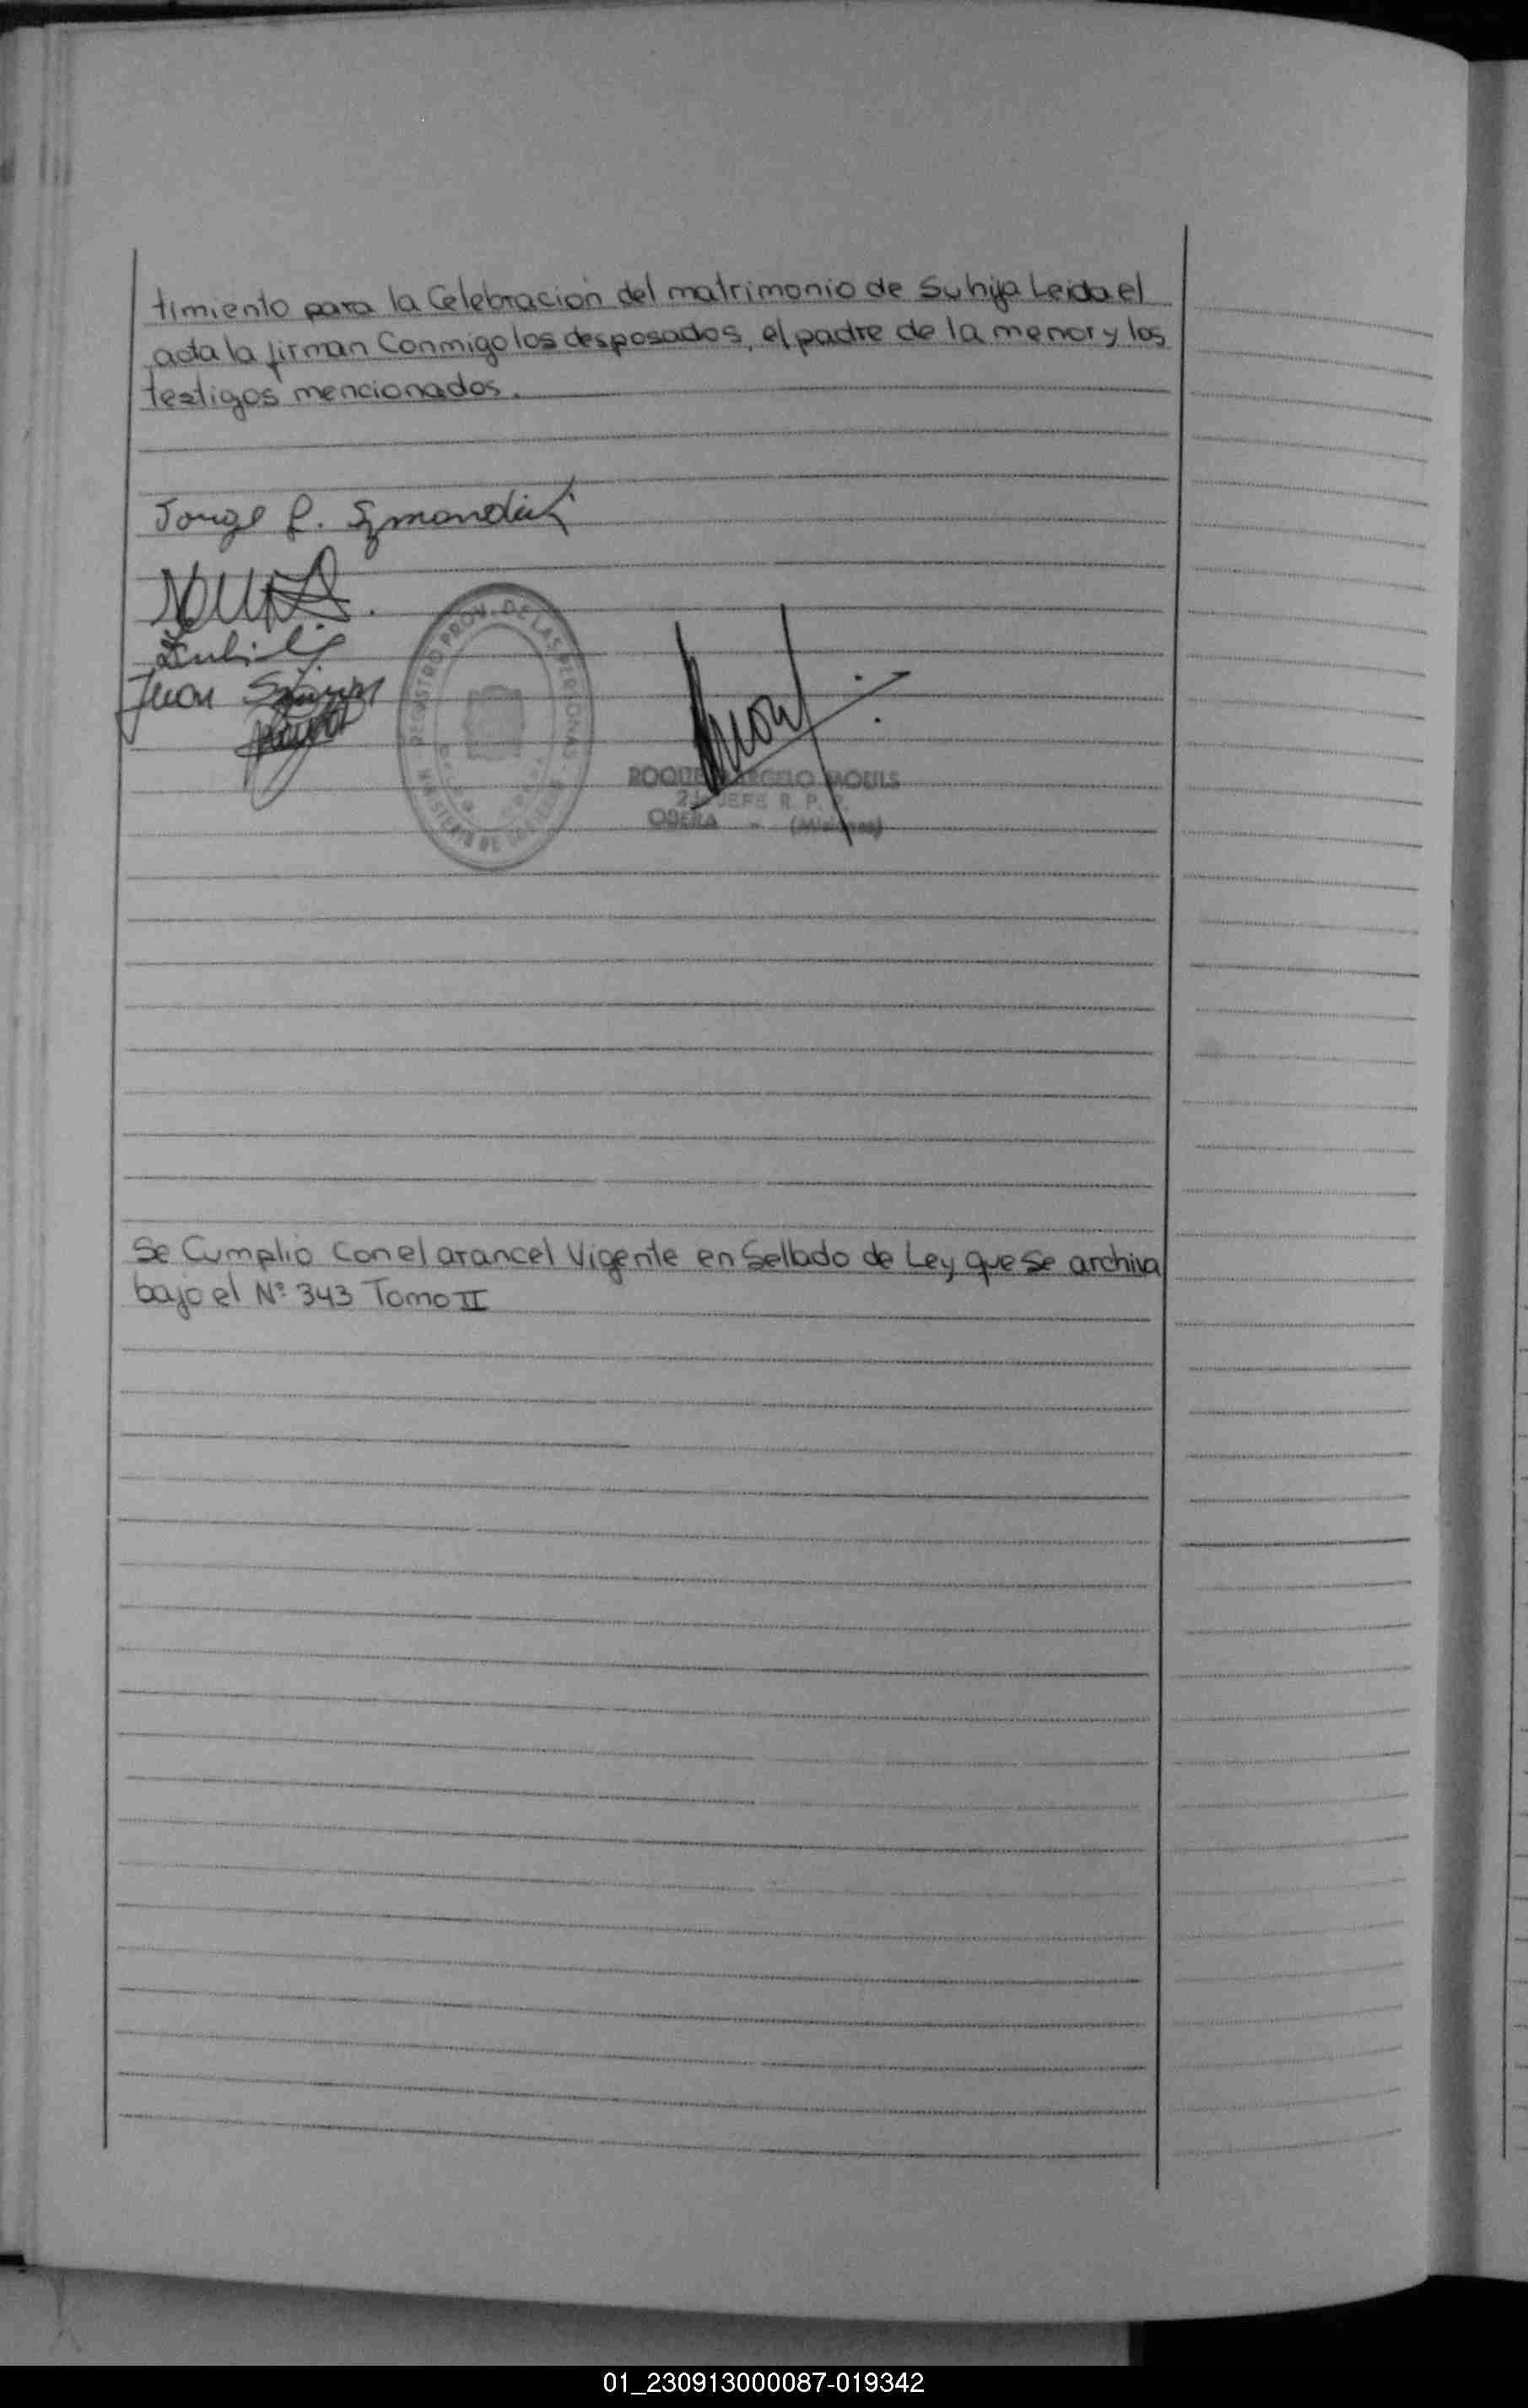 timiento para la Celebracion del matrimonio de Su hija Leida el
acta la firman Conmigo los desposados, el padre de la menor y los
testigos mencionados.
Jorge
Juan
REGISTRO PROV. DE LAS PERSONAS
MINISTERIO DE GOBIERNO
ROQUE MOULS
2º JEFE R. P. P.
OBERA - (Misiones)
Se Cumplio Con el arancel Vigente en Sellado de Ley que se archiva
bajo el Nº 343 Tomo II
01_230913000087-019342